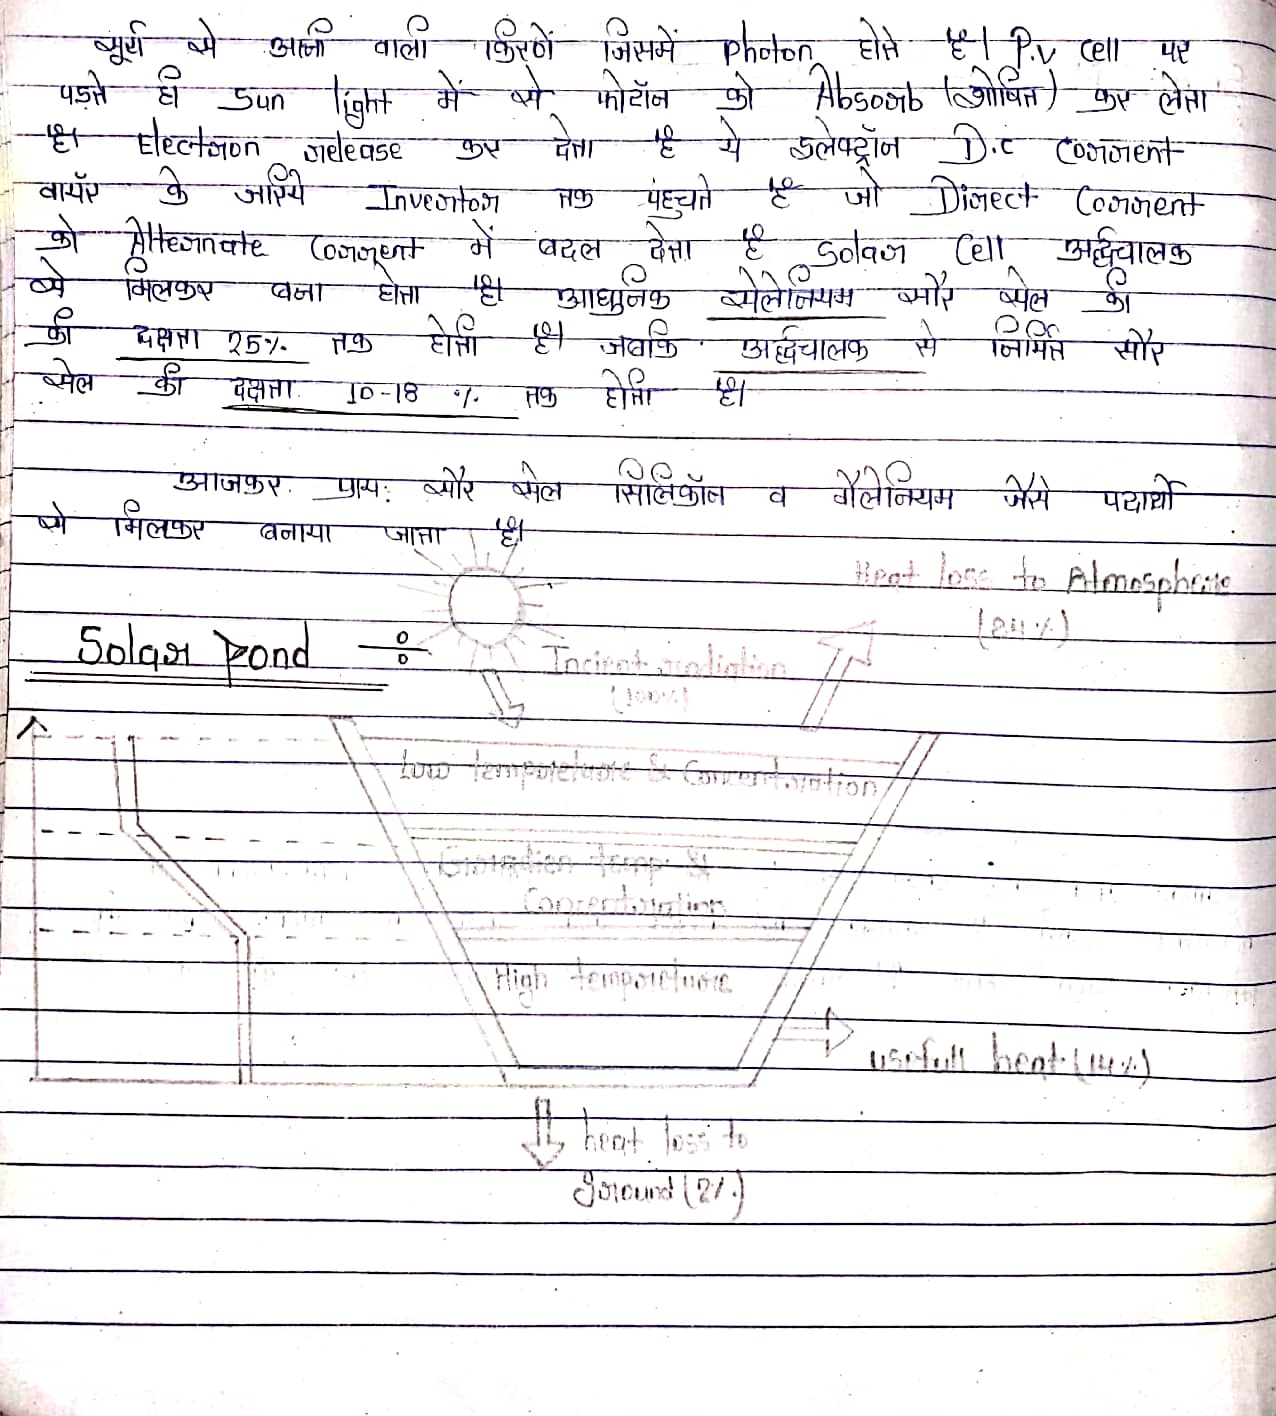 सूर्य से आनी वाली किरणें जिसमें photon होते है। P.v cell पर
पड़ते ही sun light में से फोटॉन को Absorb (शोषित) कर लेता
है। Electron release कर देता है ये इलेक्ट्रॉन D.C Current
वायॅर के जरिये Invertor तक पंहुचते है जो Direct Current
को Alternate Current में बदल देता है Solar Cell अर्द्धचालक
से मिलकर बना होता है। आधुनिक सेलेनियम सौर सेल की
की दक्षता 25% तक होती है। जबकि अर्द्धचालक से निर्मित सौर
सेल की दक्षता 10-18 % तक होती है।
आजकर प्राय: सौर सेल सिलिकॉन व गैलेनियम जैसे पदार्थो
से मिलकर बनाया जाता है।
Heat loss to Atmosphere
(24%)
Solar Pond ÷
Incident radiation
(100%)
Low tempereture & Concentration
Gradien temp. &
Concentration
High tempereture
usefull heat (14%)
heat loss to
ground (2%)